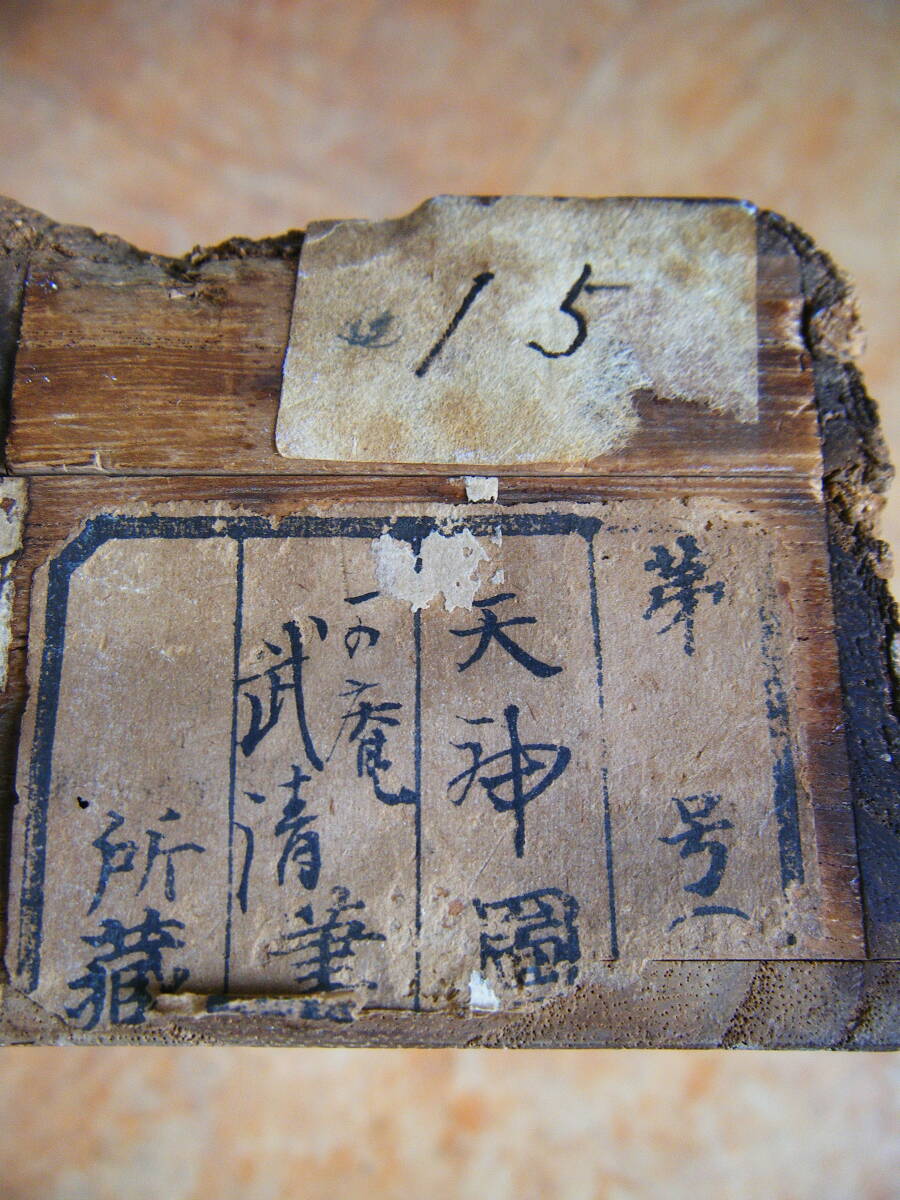 15
第 号
天神圖
可庵
武清筆
所藏